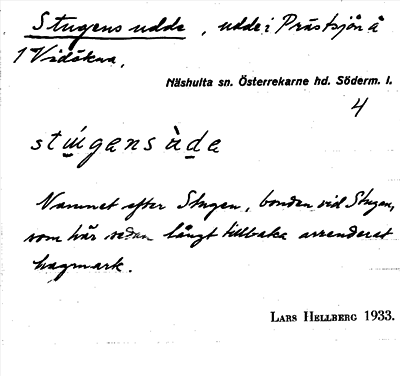 Stugens udde, udde i Prästsjön å
1 Vidökna.
Näshulta sn. Österrekarne hd. Söderm. l.
4
stúgens ùde
Namnet efter Stugen, bonden vid Stugan,
som här sedan långt tillbaka arrenderat
hagmark.
LARS HELLBERG 1933.